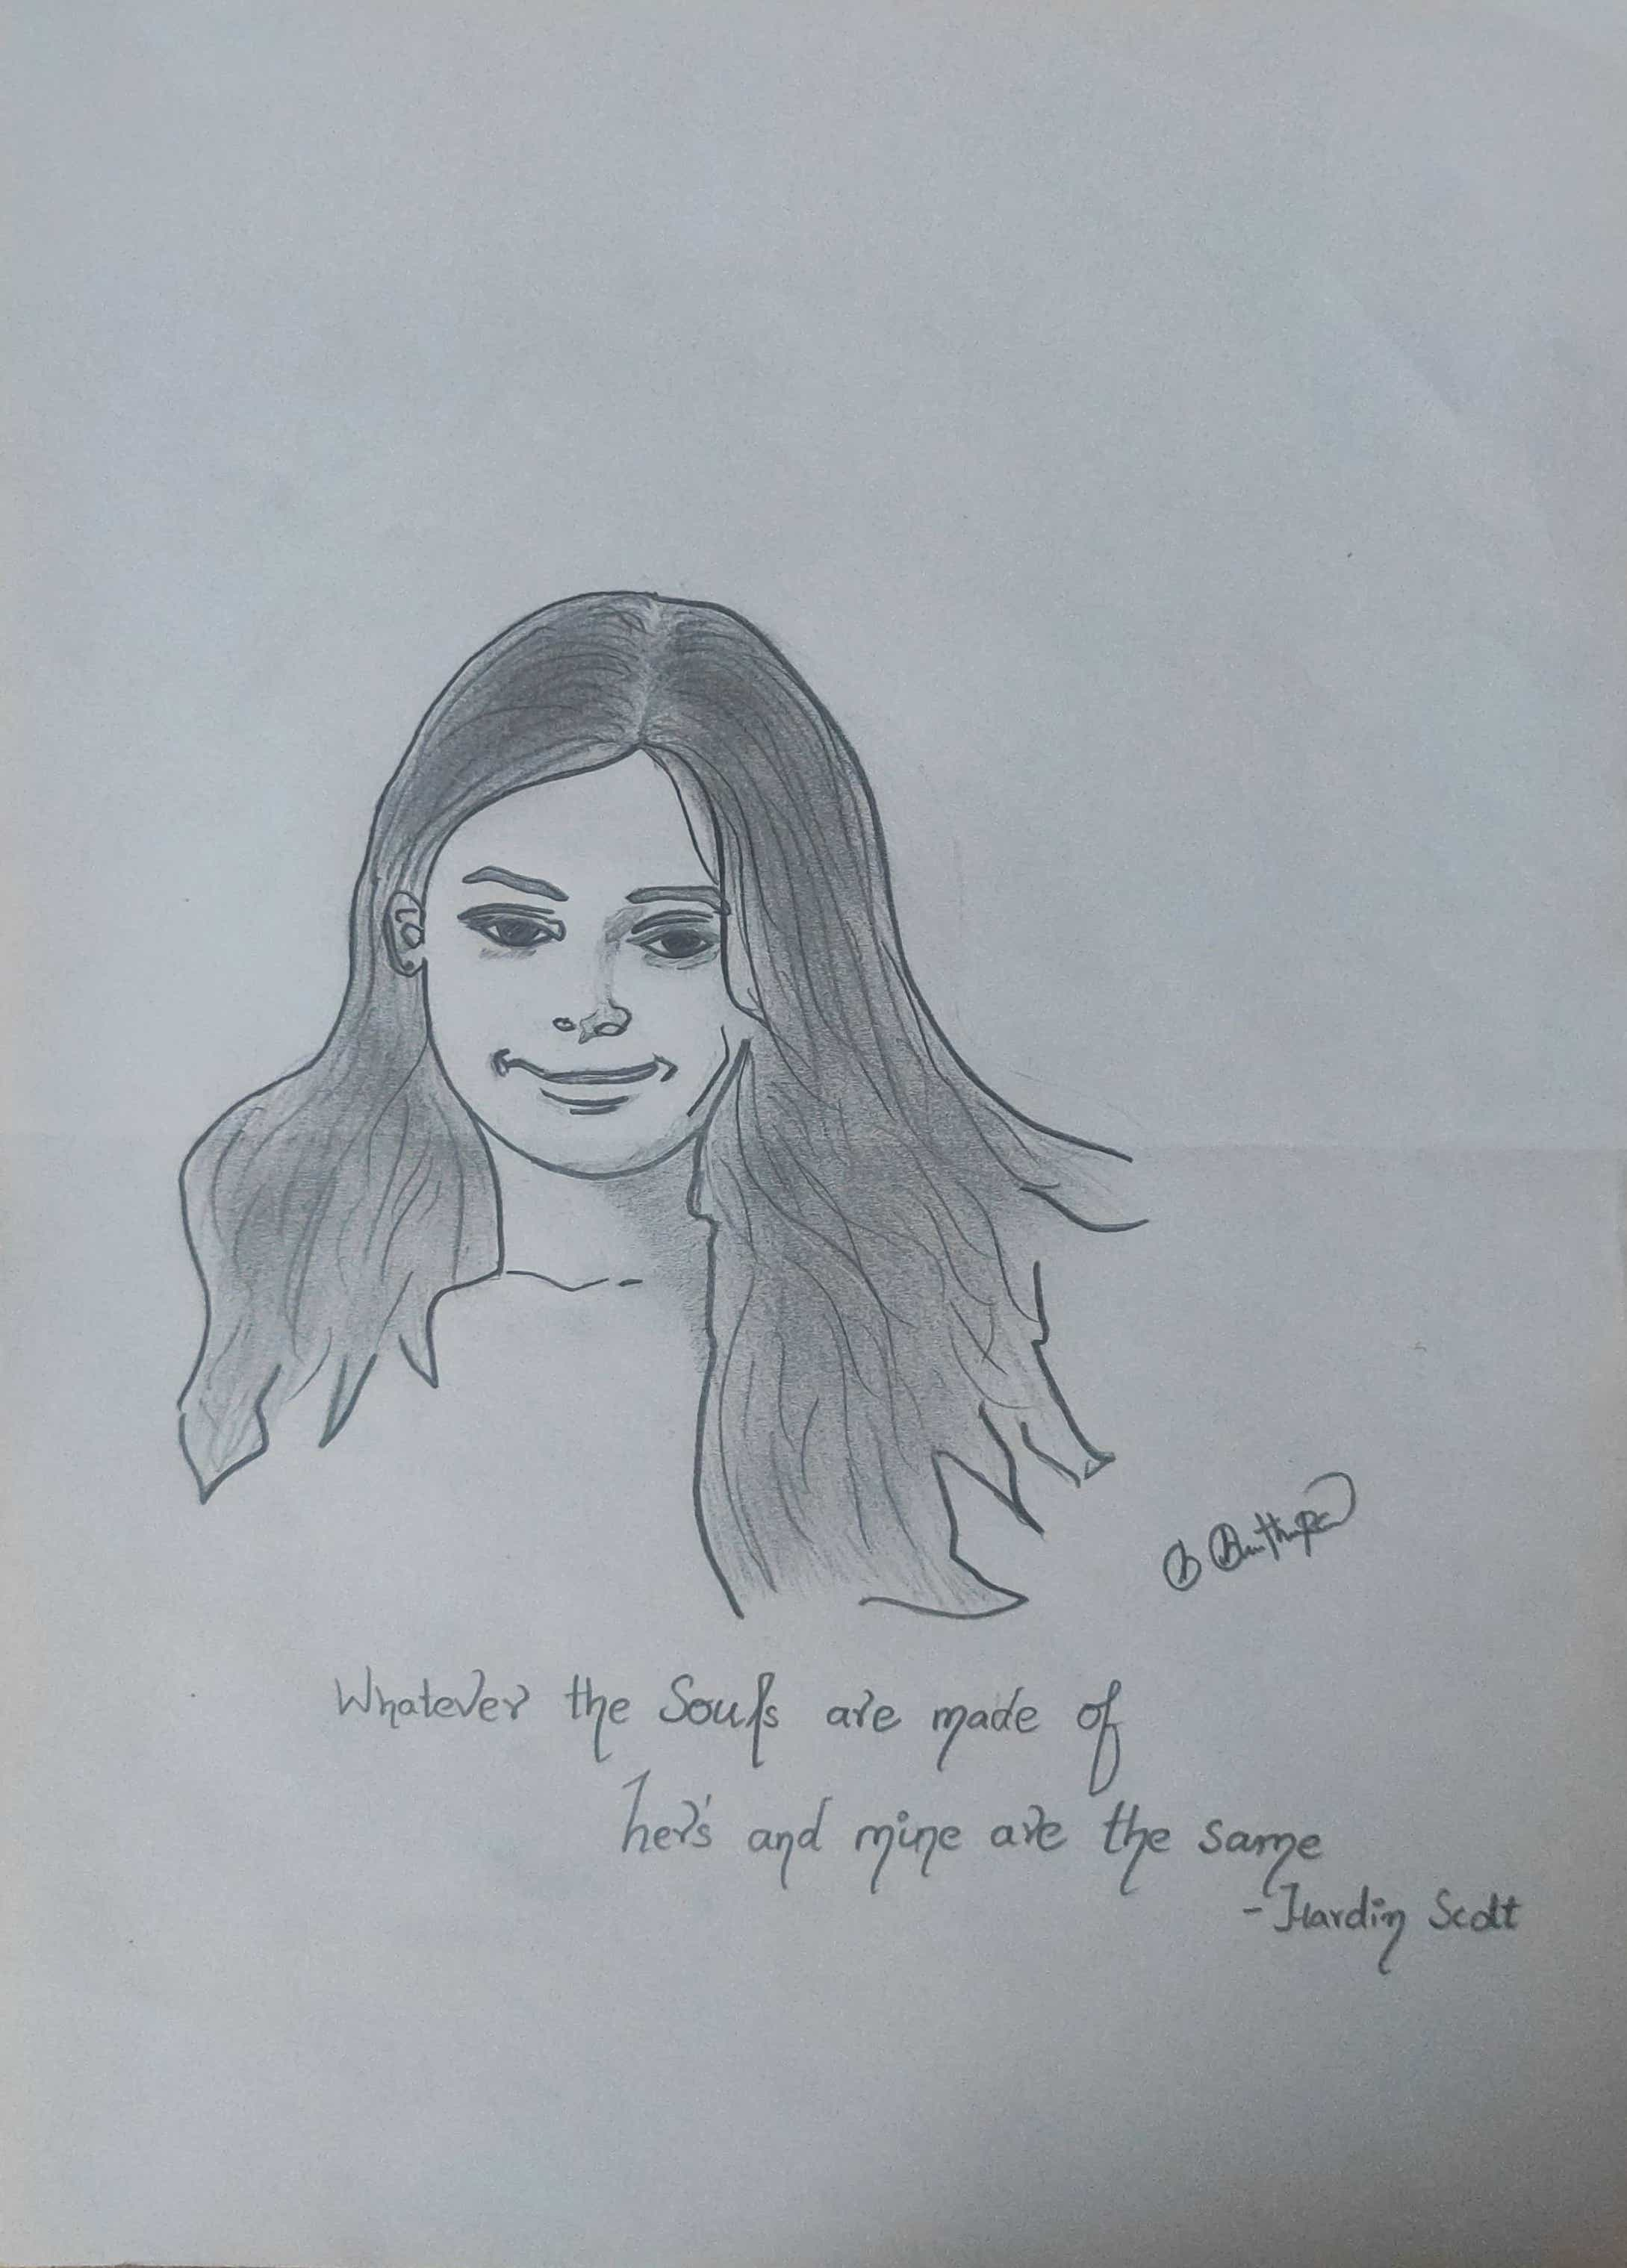 Whatever the Souls are made of
her's and mine are the same
- Hardin Scott